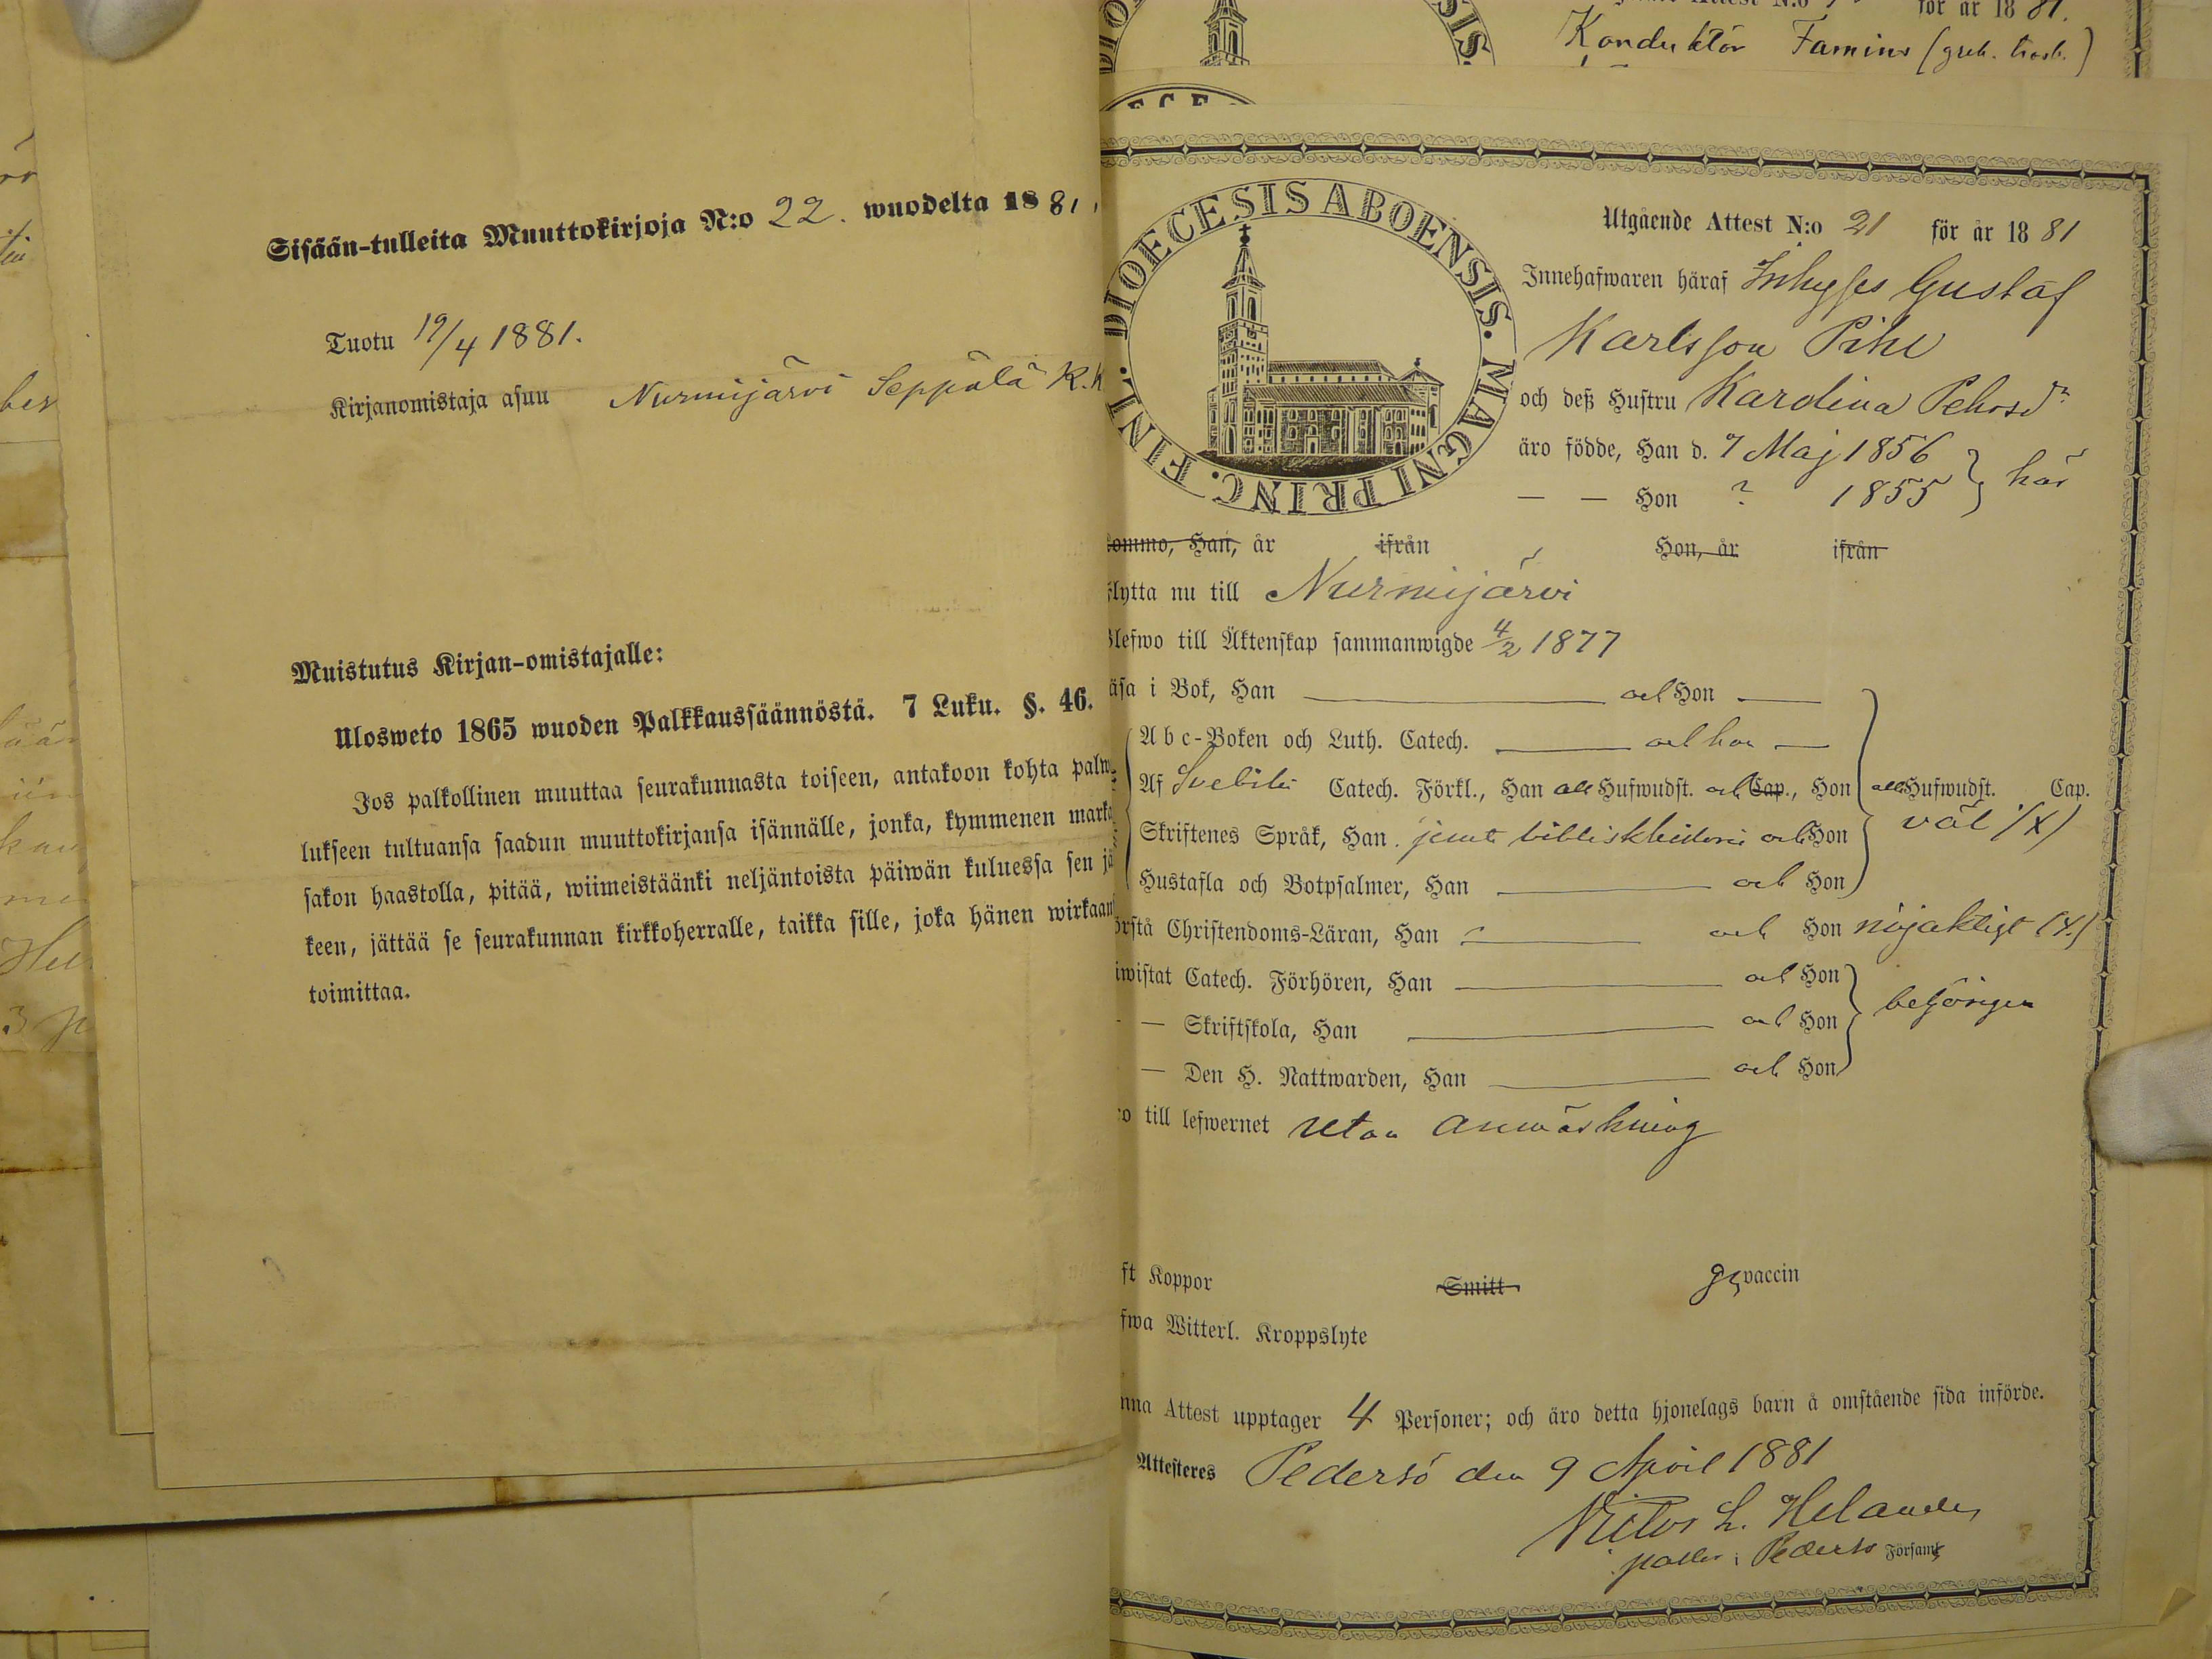 Sisään-tulleita Muuttokirjoja N:o 22. wuodelta 1881,
Tuotu 19/4 1881.
Kirjanomistaja asuu Nurmijärvi Seppälä R.K
Muistutus Kirjan-omistajalle:
Ulosweto 1865 wuoden Palkkaussäännöstä. 7 Luku. §. 46.
Jos palkollinen muuttaa seurakunnasta toiseen, antakoon kohta palw
lukseen tultuansa saadun muuttokirjansa isännälle, jonka, kymmenen marka
sakon haastolla, pitää, wiimeistäänki neljäntoista päiwän kuluessa sen jä
keen, jättää se seurakunnan kirkkoherralle, taikka sille, joka hänen wirkaan
toimittaa.
för år 1881.
Konduktör Famins
DIOECESIS ABOENSIS. MAGNI PRINC. FINL.
Utgående Attest N:o 21 för år 1881
Innehafwaren häraf Inhyses Gustaf
Karlsson Pihl
och deß Hustru Karolina
äro födde, Han d. 7 Maj 1856
— — Hon ? 1855 } här
ommo, Han, år ifrån Hon, år ifrån
flytta nu till Nurmijärvi
Blefwo till Äktenskap sammanwigde 4/2 1877
äsa i Bok, Han och Hon
Abc-Boken och Luth. Catech. och hon
Af Svebilii Catech. Förkl., Han alla Hufwudst. och Cap., Hon alla Hufwudst. Cap.
Skriftenes Språk, Han jemte och Hon väl (X)
Hustafla och Botpsalmer, Han och Hon
örstå Christendoms-Läran, Han och Hon nöjaktigt (X)
iwistat Catech. Förhören, Han och Hon
— Skriftskola, Han och Hon behörigen
— Den H. Nattwarden, Han och Hon
ro till lefwernet utan anmärkning
ft Koppor Smitt vaccin
fwa Witterl. Kroppslyte
nna Attest upptager 4 Personer; och äro detta hjonelags barn å omstående sida införde.
Attesteres Pedersö den 9 April 1881
Victor L. Helander
i Pedersö Församl